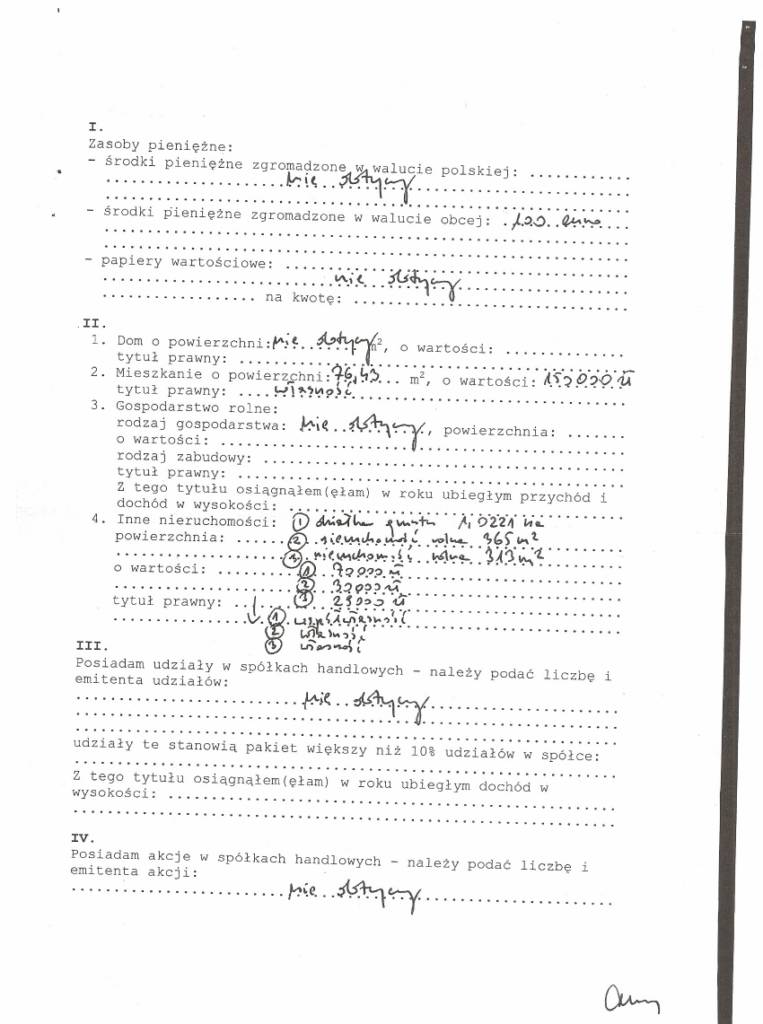 I.
Zasoby pieniężne:
- środki pieniężne zgromadzone w walucie polskiej: ............
nie dotyczy
- środki pieniężne zgromadzone w walucie obcej: .100 euro....
- papiery wartościowe: ..........
nie dotyczy
................. na kwotę: ..........
II.
1. Dom o powierzchni: nie dotyczy m², o wartości: ..............
tytuł prawny: ..........
2. Mieszkanie o powierzchni: 76,43... m², o wartości: 150 000 zł
tytuł prawny: .... własność
3. Gospodarstwo rolne:
rodzaj gospodarstwa: nie dotyczy, powierzchnia: .......
o wartości: ..........
rodzaj zabudowy: ..........
tytuł prawny: ..........
Z tego tytułu osiągnąłem(ęłam) w roku ubiegłym przychód i
dochód w wysokości: ..........
4. Inne nieruchomości: ① działka gruntu 1,0221 ha
powierzchnia: ...... ② nieruchomość rolna 365 m²
③ nieruchomość rolna 313 m²
o wartości: ......... ① 70000 zł
② 30000 zł
③ 25000 zł
tytuł prawny: ..
① współwłasność
② własność
③ własność
III.
Posiadam udziały w spółkach handlowych - należy podać liczbę i
emitenta udziałów:
nie dotyczy
udziały te stanowią pakiet większy niż 10% udziałów w spółce:
Z tego tytułu osiągnąłem(ęłam) w roku ubiegłym dochód w
wysokości: ..........
IV.
Posiadam akcje w spółkach handlowych - należy podać liczbę i
emitenta akcji:
nie dotyczy